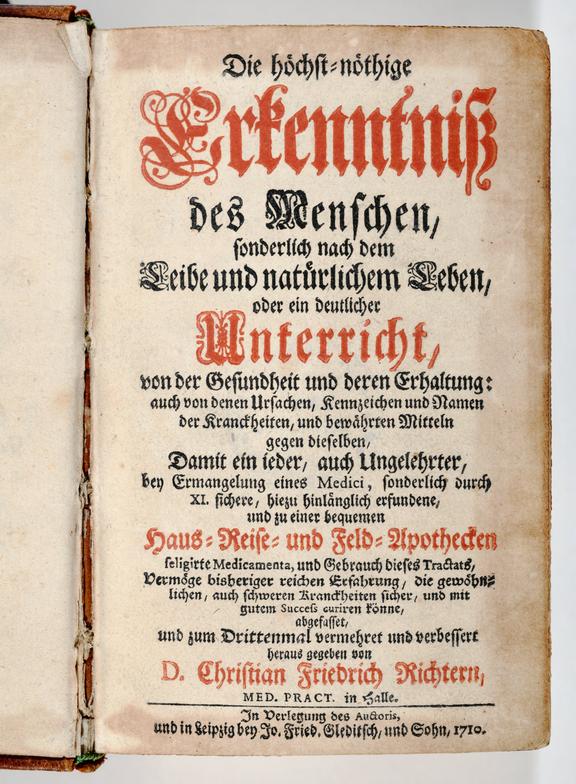 Die höchst-nöthige
Erkenntniß
des Menschen,
sonderlich nach dem
Leibe und natürlichem Leben,
oder ein deutlicher
Unterricht,
von der Gesundheit und deren Erhaltung:
auch von denen Ursachen, Kennzeichen und Namen
der Kranckheiten, und bewährten Mitteln
gegen dieselben,
Damit ein ieder, auch Ungelehrter,
bey Ermangelung eines Medici, sonderlich durch
XI. sichere, hiezu hinlänglich erfundene,
und zu einer bequemen
Haus- Reise- und Feld-Apothecken
seligirte Medicamenta, und Gebrauch dieses Tractats,
Vermöge bisheriger reichen Erfahrung, die gewöhn-
lichen, auch schweren Kranckheiten sicher, und mit
gutem Success curiren könne,
abgefasset,
und zum Drittenmal vermehret und verbessert
heraus gegeben von
D. Christian Friedrich Richtern,
MED. PRACT. in Halle.
In Verlegung des Auctoris,
und in Leipzig bey Jo. Fried. Gleditsch, und Sohn, 1710.